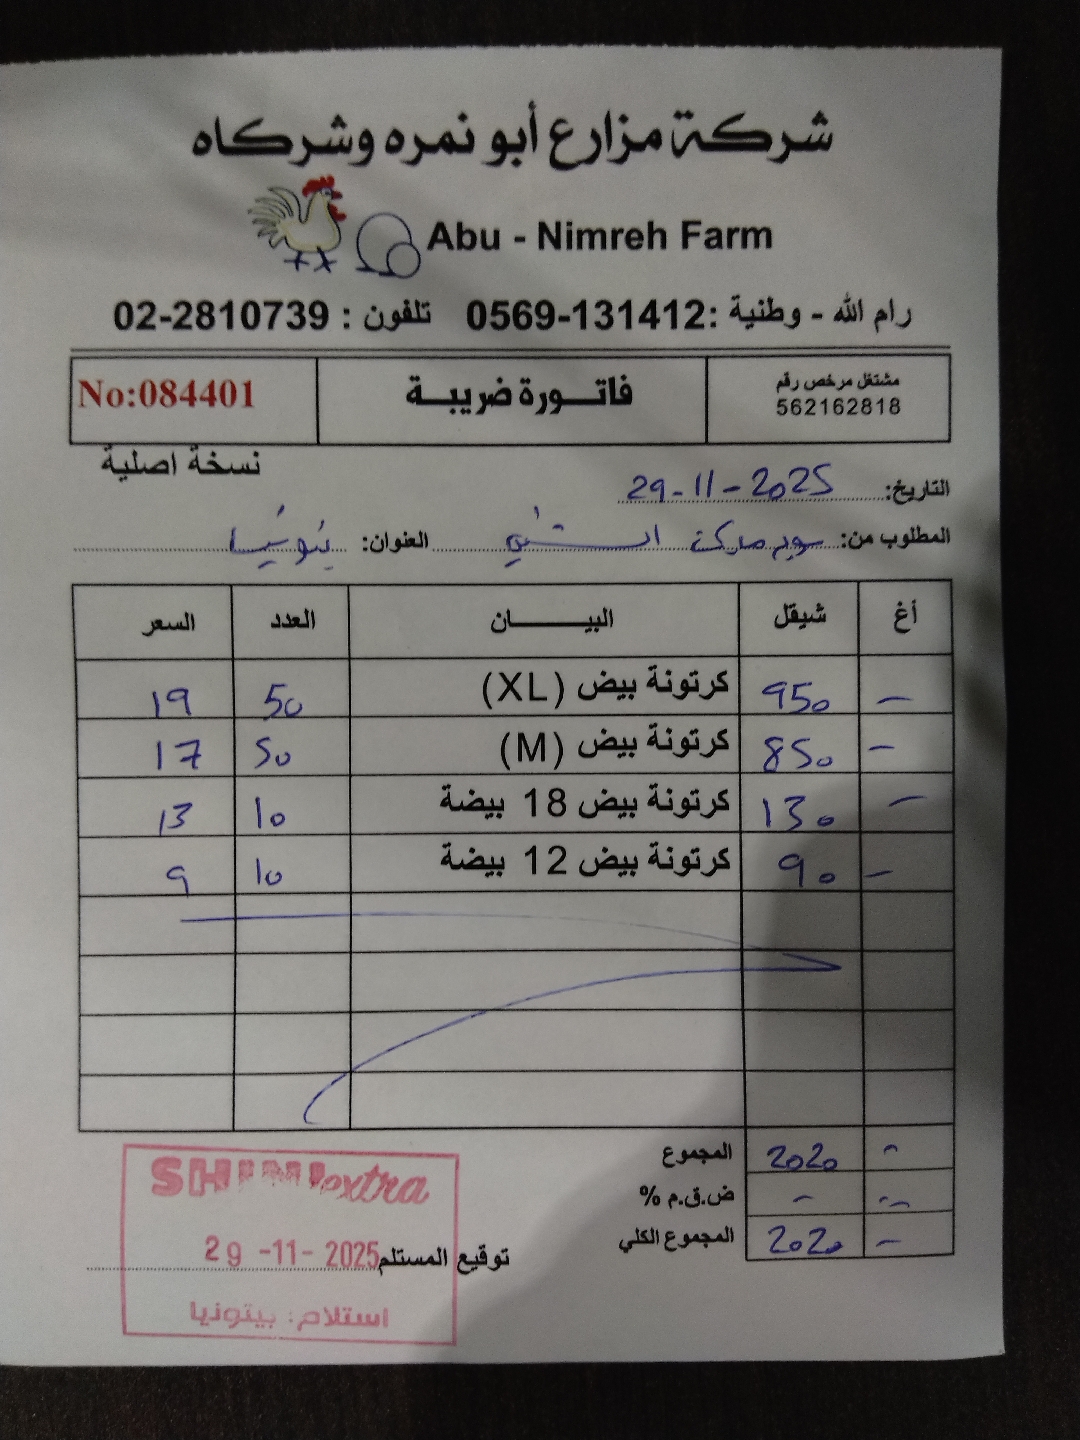 شركة مزارع أبو نمره وشركاه
Abu - Nimreh Farm
رام الله - وطنية :0569-131412 تلفون : 02-2810739
مشتغل مرخص رقم
562162818
فاتورة ضريبة
No:084401
نسخة اصلية
التاريخ: 29-11-2025
المطلوب من: سوبر ماركة الشني العنوان: بتونيا
أغ شيقل البيان العدد السعر
- 950 كرتونة بيض (XL) 50 19
- 850 كرتونة بيض (M) 50 17
- 130 كرتونة بيض 18 بيضة 10 13
- 90 كرتونة بيض 12 بيضة 10 9
المجموع 2020 -
ض.ق.م % - -
المجموع الكلي 2020 -
توقيع المستلم
SHINI extra
29 -11- 2025
استلام: بيتونيا